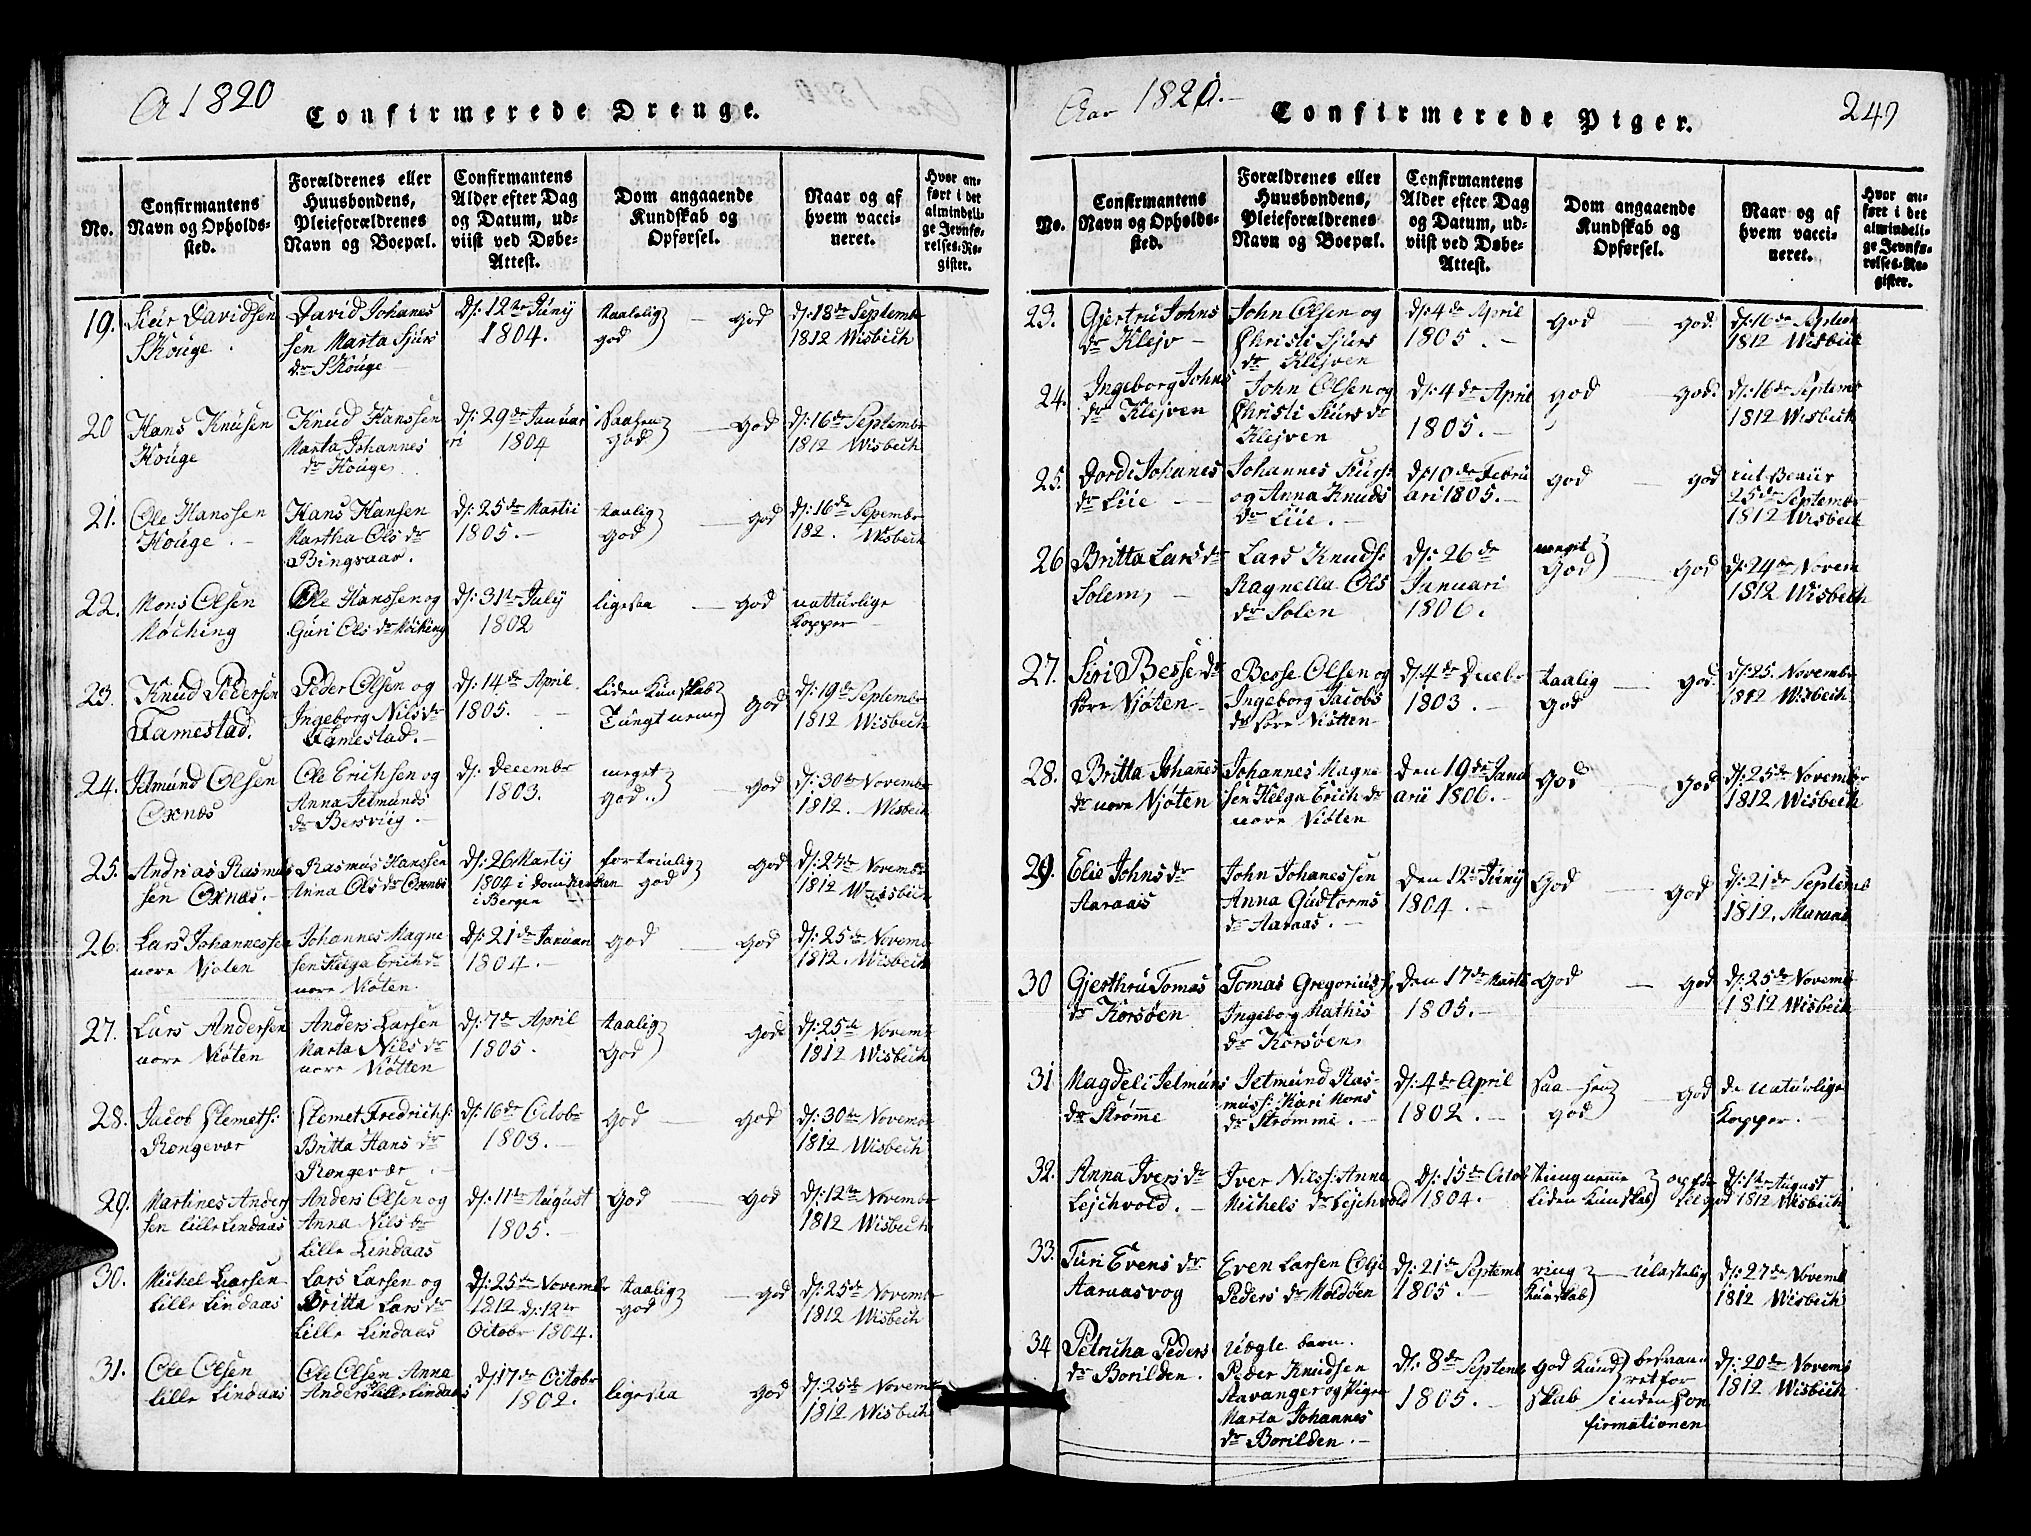 A 1820
Confirmerede Drenge.
No.
Confirmantens
Navn og Opholds-
sted.
Forældrenes eller
Huusbondens,
Pleieforældrenes
Navn og Boepæl.
Confirmantens
Alder efter Dag
og Datum, ud-
viist ved Døbe-
Attest.
Dom angaaende
Kundskab og
Opførsel.
Naar og af
hvem vacci-
neret.
Hvor an-
ført i det
almindeli-
ge Jevnfø-
relses-Re-
gister.
19. Siur Davidsen
Skouge
David Johanes
sen Marta Sjurs
dr Skouge
d/: 12te Juny
1804.
taalelig
god
God
d/: 18de Septembr
1812 Wisbech
20 Hans Knusen
Houge
Knud Hanssen
Marta Johannes
dr Houge
d/: 29de Januar
ri 1804
Saasen
god
God
d/: 16de Septembr
1812 Wisbech
21. Ole Hanssen
Houge
Hans Hansen
Martha Ols dr
Bingsaar.
d/: 25de Martii
1805.
taalig
God
God
d/: 16de Sepembr
182. Wisbech
22. Mons Olsen
Møching
Ole Hanssen og
Guri Ols dr Møching
d/: 31te July
1802
ligesaa
God
natturlige
Kopper
23. Knud Pedersen
Famestad.
Peder Olsen og
Ingeborg Nils dr
Famestad.
d/: 14de April
1805.
Liden Kunskab
Tungt neme
God
d/: 19de Septembr
1812 Wisbech
24. Jetmund Olsen
Oxnæs
Ole Erichsen og
Anna Jetmunds
dr Bersvig
d/: Decembr
1803.
meget
god
God
d/: 30te Novembr
1812. Wisbech
25. Andreas Rasmus
sen Oxnæs.
Rasmus Hanssen
Anna Ols dr Oxnæs
d/: 26 Martij
1804 i Domkerken
i Bergen
fortrinlig
god
God
d/: 27de Novembr
1812 Wisbech
26. Lars Johannessen
nore Njøten
Johannes Magne
sen Helga Erich dr
nore Niøten.
d/: 21de Januari
1804.
God
God
d/: 25de Novembr
1812. Wisbech
27. Lars Andersen
nore Niøten
Anders Larsen
Marta Nils dr
nore Niøtten
d/: 7de April
1805.
taalig
God
God
d/: 25de Novembr
1812 Wisbech
28. Jacob Slemeths:
Rongevær
Slemet Fredrichs:
Britta Hans dr
Rongevær
d/: 16de Octobr
1803.
God
God
d/: 30te Novembr
1812 Wisbech
29. Martines Anders
sen Lille Lindaas
Anders Olsen og
Anna Nils dr
Lille Lindaas
d/: 11te August
1805.
God
God
d/: 12te Novembr
1812 Wisbech
30. Mickel Larsen
Lille Lindaas
Lars Larsen og
Britta Lars dr
Lille Lindaas
d/: 25de Novembr
1812 d/: 12te
Octobr 1804.
taalig
god
God
d/: 25de Novembr
1812 Wisbech
31. Ole Olsen
Lille Lindaas
Ole Olsen Anna
Anders Lille Lindaas
d/: 17de Octobr
1802.
ligesaa
God
d/: 25de Novembr
1812 Wisbech
Aar 1820.
Confirmerede Piger.
249
No.
Confirmantens
Navn og Opholds-
sted.
Forældrenes eller
Huusbondens,
Pleieforældrenes
Navn og Boepæl.
Confirmantens
Alder efter Dag
og Datum, ud-
viist ved Døbe-
Attest.
Dom angaaende
Kundskab og
Opførsel.
Naar og af
hvem vacci-
neret.
Hvor an-
ført i det
almindeli-
ge Jevnfø-
relses-Re-
gister.
23. Gjertru Johns
dr Klejv
John Olsen og
Christi Sjurs
dr Klejven
d/: 4de April
1805.
God
God.
d/: 16de Septem
1812 Wisbech
24. Ingeborg Johns
dr Klejven
John Olsen og
Christi Siurs dr
Klejven
d/: 4de April
1805.
God
God.
d/: 16de Septemb
1812 Wisbech
25. Dordi Johanes
dr Liie
Johannes Siurs:
og Anna Knuds
dr Liie.
d/: 10de Febru
ari 1805.
God
God
25de Septembr
1812 Wisbech
26 Britta Lars dr
Solem,
Lars Knuds:
Ragnella Ols
dr Solen
d/: 26de
Januari
1806.
meget
God
God
d/: 24de Novem
1812 Wisbech
27. Siri Besse dr
søre Njøten
Besse Olsen og
Ingeborg Jacobs
dr søre Niøtten
d/: 4de Decbr
1803.
taalig
God
God
d/: 25. Novembr
1812 Wisbech
28. Britta Johanes
dr nore Njøten
Johannes Magne
sen Helga Erich dr
nore Niøten
Den 19de Janu
arii 1806.
God
God
d/: 25de Novembr
1812 Wisbech
29. Elie Johns dr
Aaraas
John Johanessen
Anna Gudtorms
dr Aaraas.
Den 12te Juny
1804.
God
God
d/: 21de Septemb
1812.
30 Gjerthru Tomas
dr Korsøen
Tomas Gregorius
Ingeborg Mathis
dr Korsøen
Den 17de Marti
1805.
God
God
d/: 25de Novemb
1812 Wisbech
31 Magdeli Jetmuns
dr Strømme
Jetmund Ras-
muss: Kari Mons
dr Strømme.
d/: 4de April
1802.
Saa-sen
God
God
de naturlige
Kopper.
32. Anna Ivers dr
Lejchvold.
Iver Nilss: Anne
Michels dr Lejchvold
d/: 15de Octob
1804.
tungneme
Liden Kunskab
d/: 12te August
1812 Wisbech
33. Turi Evens dr
Aaraasvog
Even Larsen Olji
Peders dr Moldøen
d/: 21de Septemb
1805.
ring
Kunskab
Ulastelig
d/: 27de Novemb
1812 Wisbech
34 Petricha Peders
dr Borilden.
Uægte barn.
Peder Knudsen
Stavanger og Pigen
Marta Johannes
dr Borilden.
d/: 8de Septemb
1805.
God Kund
skab
besvan-
ret for
inden Con
firmationen
d/: 20de Novemb
1812 Wisbech